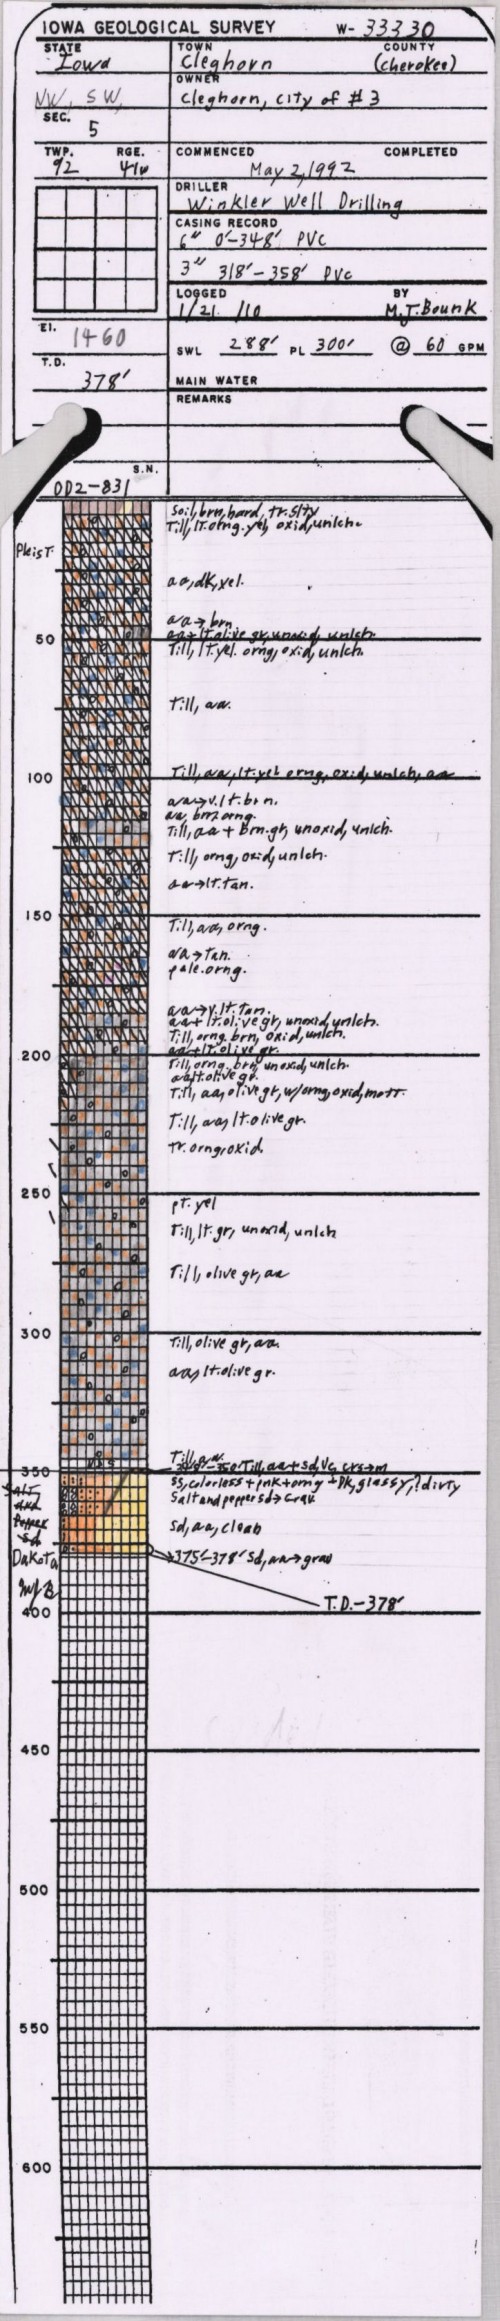 IOWA GEOLOGICAL SURVEY W- 33330
STATE
Iowa
TOWN
Cleghorn
COUNTY
(Cherokee)
NW, SW,
OWNER
Cleghorn, City of #3
SEC.
5
TWP. RGE.
92 41W
COMMENCED COMPLETED
May 2, 1992
DRILLER
Winkler Well Drilling
CASING RECORD
6" 0'-348' PVC
3" 318'-358' PVC
LOGGED BY
1/21 /10 M.J. Bounk
El.
1460
SWL 288' PL 300' @ 60 GPM
T.D.
378'
MAIN WATER
REMARKS
S.N.
002-831
Soil, brn, hard, tr. slty
Till, lt. orng. yel, oxid, unlch.
Pleist.
aa, dk, yel.
aa→ brn
aa+lt. olive gr, unoxid, unlch.
50
Till, lt. yel. orng, oxid, unlch.
Till, aa.
100
Till, aa, lt. yel orng, oxid, unlch, aa
aa→v. lt. brn.
aa, brn orng.
Till, aa + brn. gr, unoxid, unlch.
Till, orng, oxid, unlch.
aa→lt. tan.
150
Till, aa, orng.
aa→ tan.
pale. orng.
aa→v. lt. tan.
aa+ lt. olive gr, unoxid, unlch.
Till, orng. brn, oxid, unlch.
aa+lt. olive gr.
200
Till, orng. brn, unoxid, unlch.
aa lt. olive gr.
Till, aa, olive gr, w/orng, oxid, mott.
Till, aa, lt. olive gr.
tr. orng, oxid.
250
pt. yel
Till, lt. gr, unoxid, unlch
Till, olive gr, aa
300
Till, olive gr, aa.
aa, lt. olive gr.
Till, aa.
350
-350' Till, aa + sd, vc, crs→m
ss, colorless + pnk + orng + Dk, glassy, ? dirty
Salt and pepper sd→ Grav
Salt
and
Pepper
Sd
Sd, aa, clean
Dakota
375'-378' Sd, aa→ grav
T.D.-378'
400
450
500
550
600